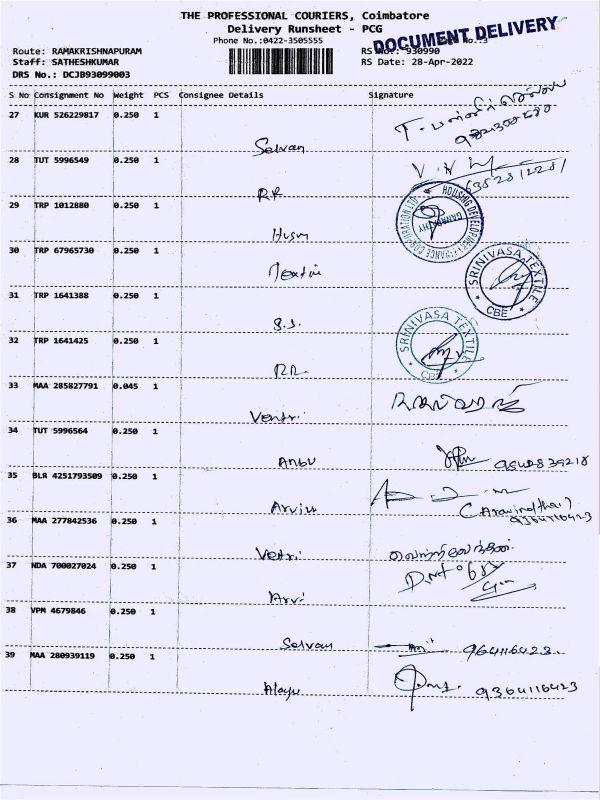 THE PROFESSIONAL COURIERS, Coimbatore
Delivery Runsheet - PCG
Phone No.:0422-3505555
DOCUMENT DELIVERY
Route: RAMAKRISHNAPURAM
RS No.: 930990
Staff: SATHESHKUMAR
RS Date: 28-Apr-2022
DRS No.: DCJB93099003
S No Consignment No Weight PCS Consignee Details Signature
27 KUR 526229817 0.250 1
Selvan
28 TUT 5996549 0.250 1
RR
29 TRP 1012880 0.250 1
HOUSING DEVELOPMENT FINANCE CORPORATION LTD
GANAPATHY
30 TRP 67965730 0.250 1
SRINIVASA TEXTILE
CBE
31 TRP 1641388 0.250 1
S.S.
32 TRP 1641425 0.250 1
SRINIVASA TEXTILE
CBE
RR
33 MAA 285827791 0.045 1
Vetri
34 TUT 5996564 0.250 1
Anbu
35 BLR 4251793509 0.250 1
Arvin
9364116423
36 MAA 277842536 0.250 1
Vetri
வெற்றிவேந்தன்
37 NDA 700027024 0.250 1
Arvi
38 VPM 4679846 0.250 1
Selvan
964116423
39 MAA 280939119 0.250 1
9364116423